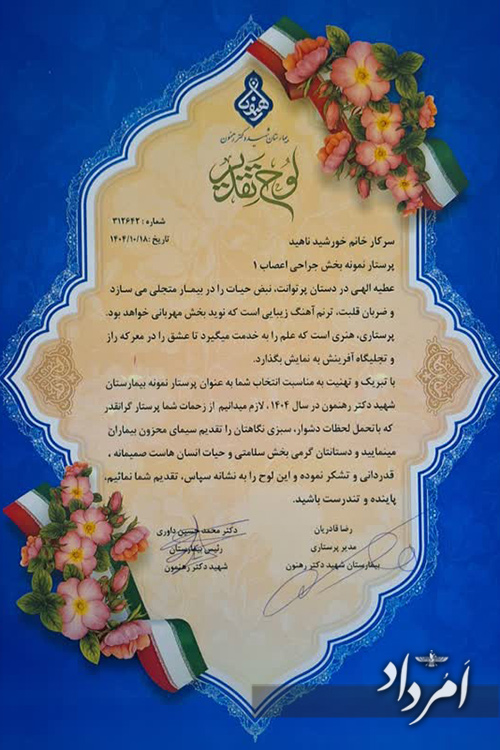 رهنمون
بیمارستان شهید دکتر رهنمون
لوح تقدیر
شماره : ۳۱۲۶۴۲
تاریخ :۱۴۰۴/۱۰/۱۸
سرکار خانم خورشید ناهید
پرستار نمونه بخش جراحی اعصاب ۱
عطیه الهی در دستان پرتوانت، نبض حیات را در بیمار متجلی می سازد
و ضربان قلبت، ترنم آهنگ زیبایی است که نوید بخش مهربانی خواهد بود.
پرستاری، هنری است که علم را به خدمت میگیرد تا عشق را در معرکه راز
و تجلیگاه آفرینش به نمایش بگذارد.
با تبریک و تهنیت به مناسبت انتخاب شما به عنوان پرستار نمونه بیمارستان
شهید دکتر رهنمون در سال ۱۴۰۴، لازم میدانیم از زحمات شما پرستار گرانقدر
که باتحمل لحظات دشوار، سبزی نگاهتان را تقدیم سیمای محزون بیماران
مینمایید و دستانتان گرمی بخش سلامتی و حیات انسان هاست صمیمانه ،
قدردانی و تشکر نموده و این لوح را به نشانه سپاس، تقدیم شما نمائیم.
پاینده و تندرست باشید.
رضا قادریان
مدیر پرستاری
بیمارستان شهید دکتر رهنون
دکتر محمد حسین داوری
رئیس بیمارستان
شهید دکتر رهنمون
اَمُرداد